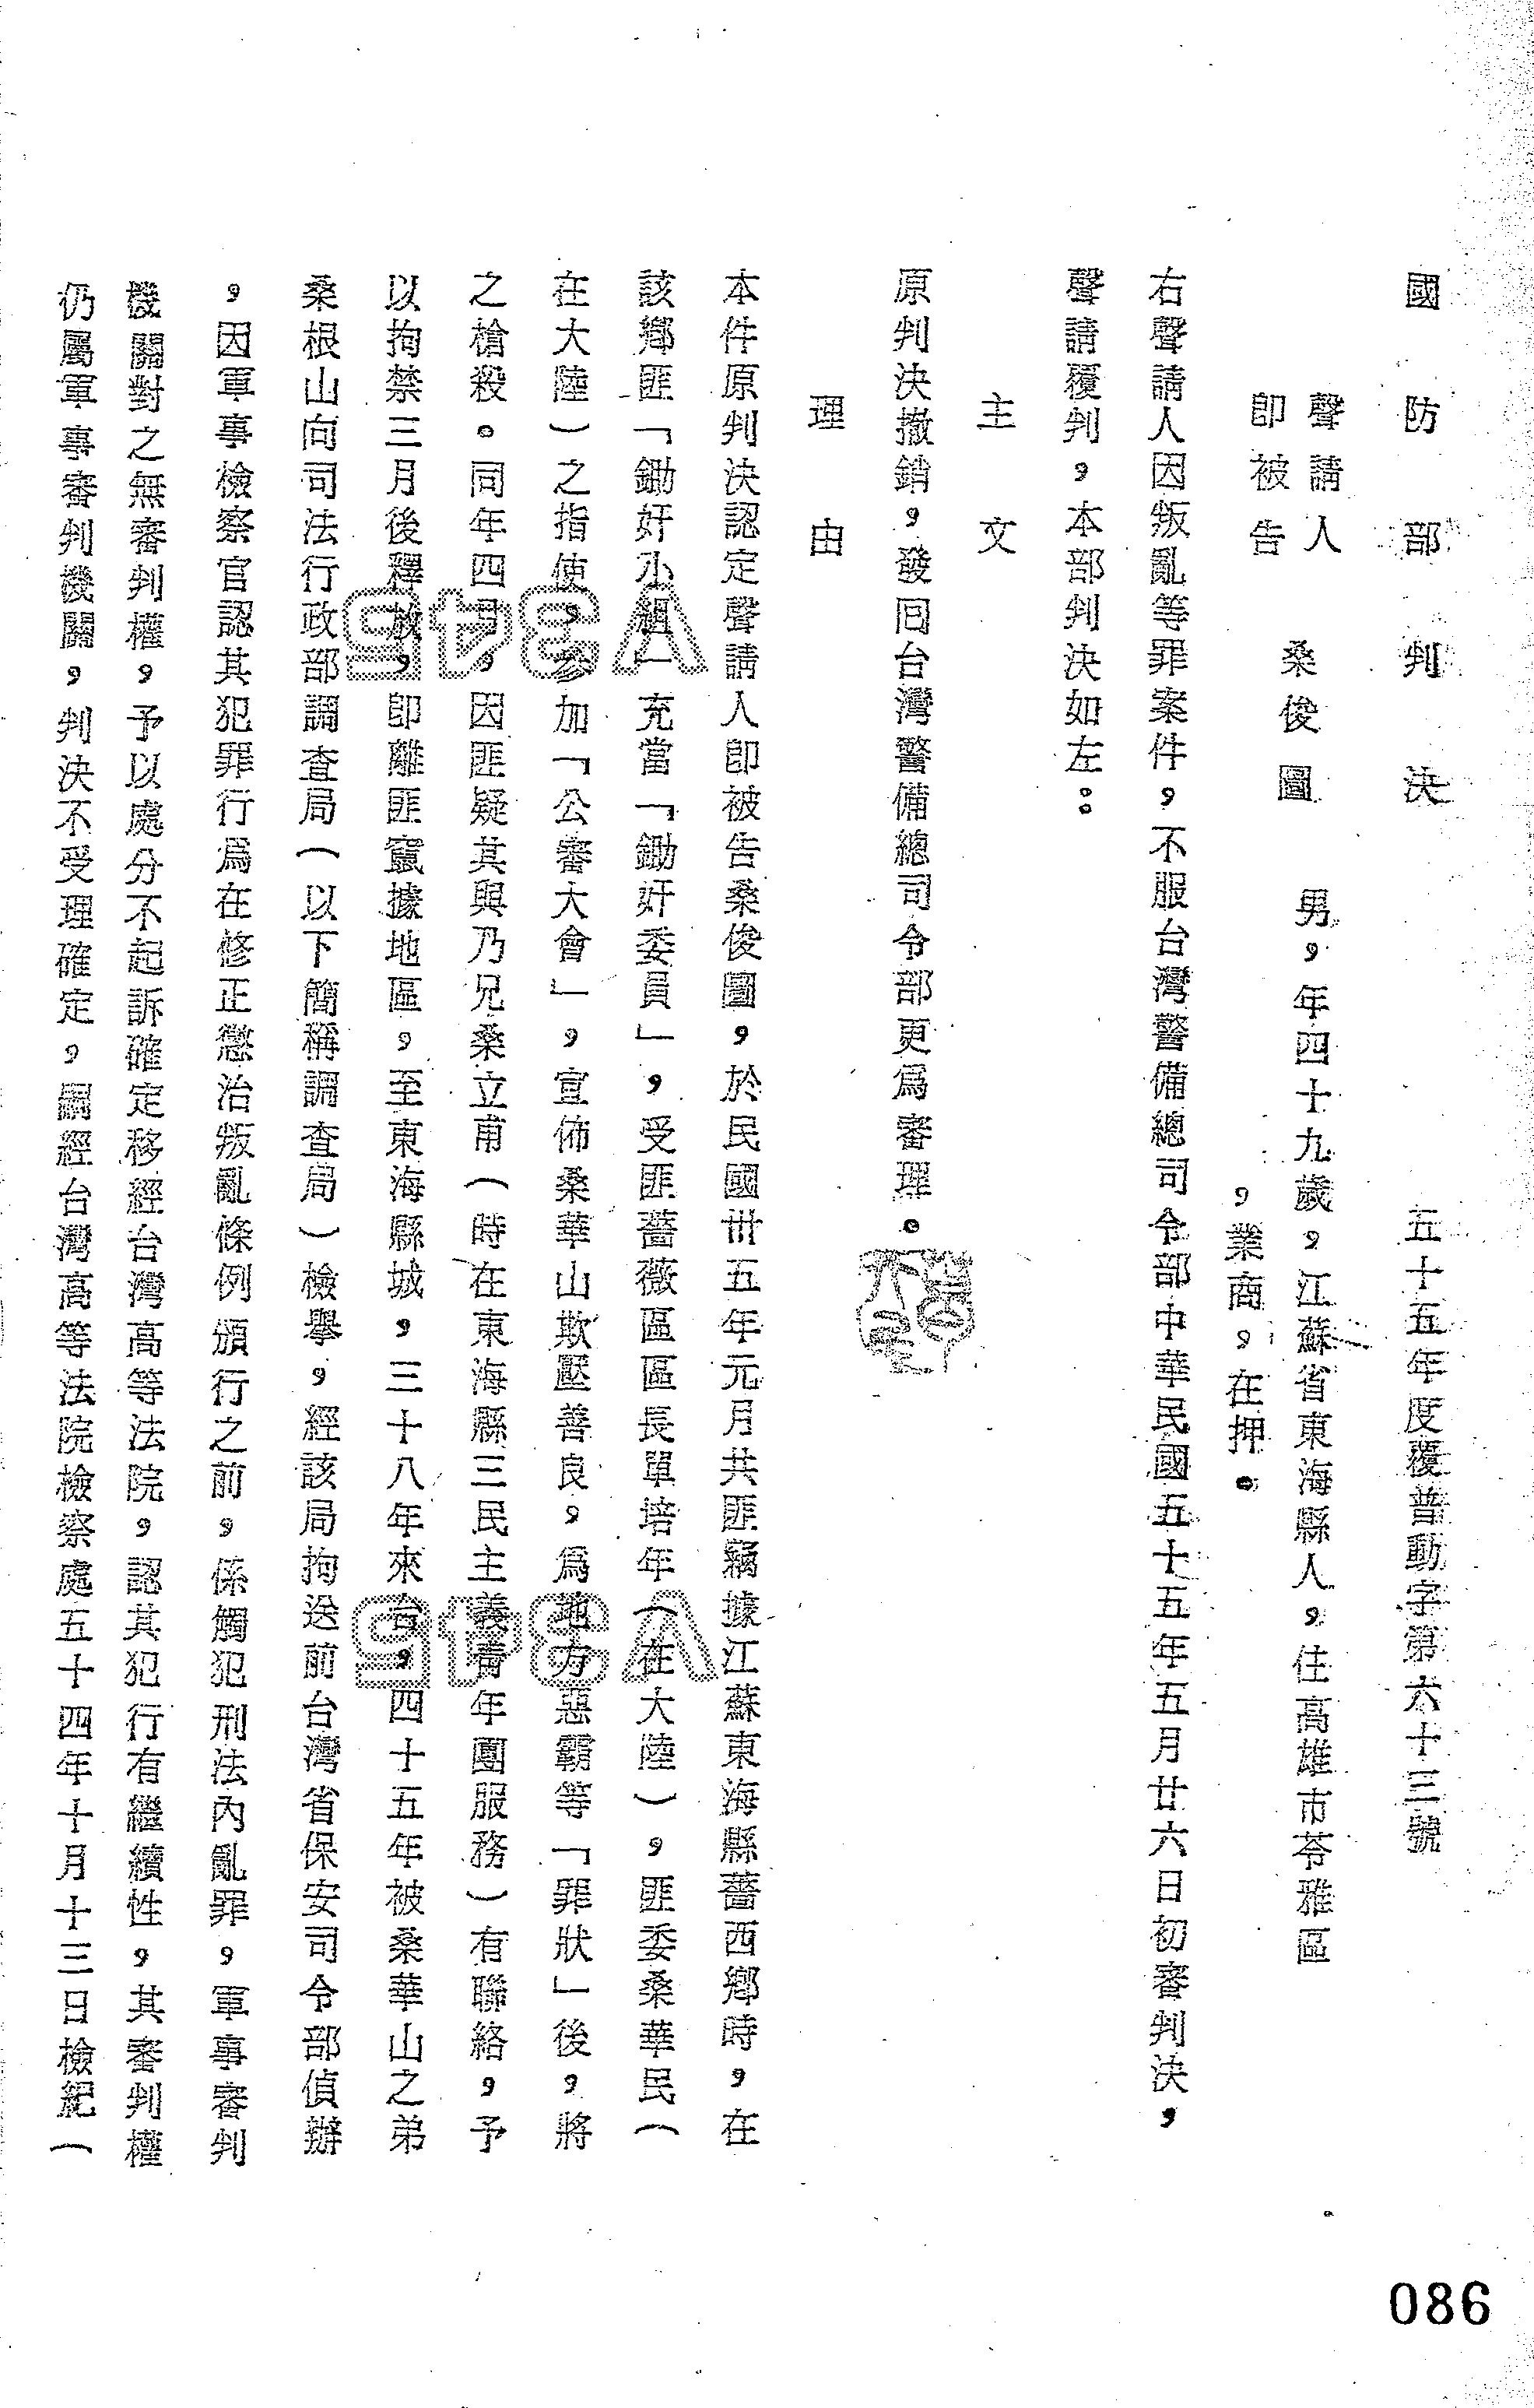 國防部判決　五十五年度覆普動字第六十三號
聲請人
即被告　桑俊圖　男，年四十九歲，江蘇省東海縣人，住高雄市苓雅區
，業商，在押。
右聲請人因叛亂等罪案件，不服台灣警備總司令部中華民國五十五年五月廿六日初審判決，
聲請覆判，本部判決如左：
主文
原判決撤銷，發回台灣警備總司令部更為審理。
理由
本件原判決認定聲請人即被告桑俊圖，於民國卅五年元月共匪竊據江蘇東海縣薔西鄉時，在
該鄉匪「鋤奸小組」充當「鋤奸委員」，受匪薔薇區區長單培年（在大陸），匪委桑華民（
在大陸）之指使，參加「公審大會」，宣佈桑華山欺壓善良，為地方惡霸等「罪狀」後，將
之槍殺。同年四月，因匪疑其與乃兄桑立甫（時在東海縣三民主義青年團服務）有聯絡，予
以拘禁三月後釋放，即離匪竄據地區，至東海縣城，三十八年來台，四十五年被桑華山之弟
桑根山向司法行政部調查局（以下簡稱調查局）檢舉，經該局拘送前台灣省保安司令部偵辦
，因軍事檢察官認其犯罪行為在修正懲治叛亂條例頒行之前，係觸犯刑法內亂罪，軍事審判
機關對之無審判權，予以處分不起訴確定移經台灣高等法院，認其犯行有繼續性，其審判權
仍屬軍事審判機關，判決不受理確定，嗣經台灣高等法院檢察處五十四年十月十三日檢紀（
A345
A345
086